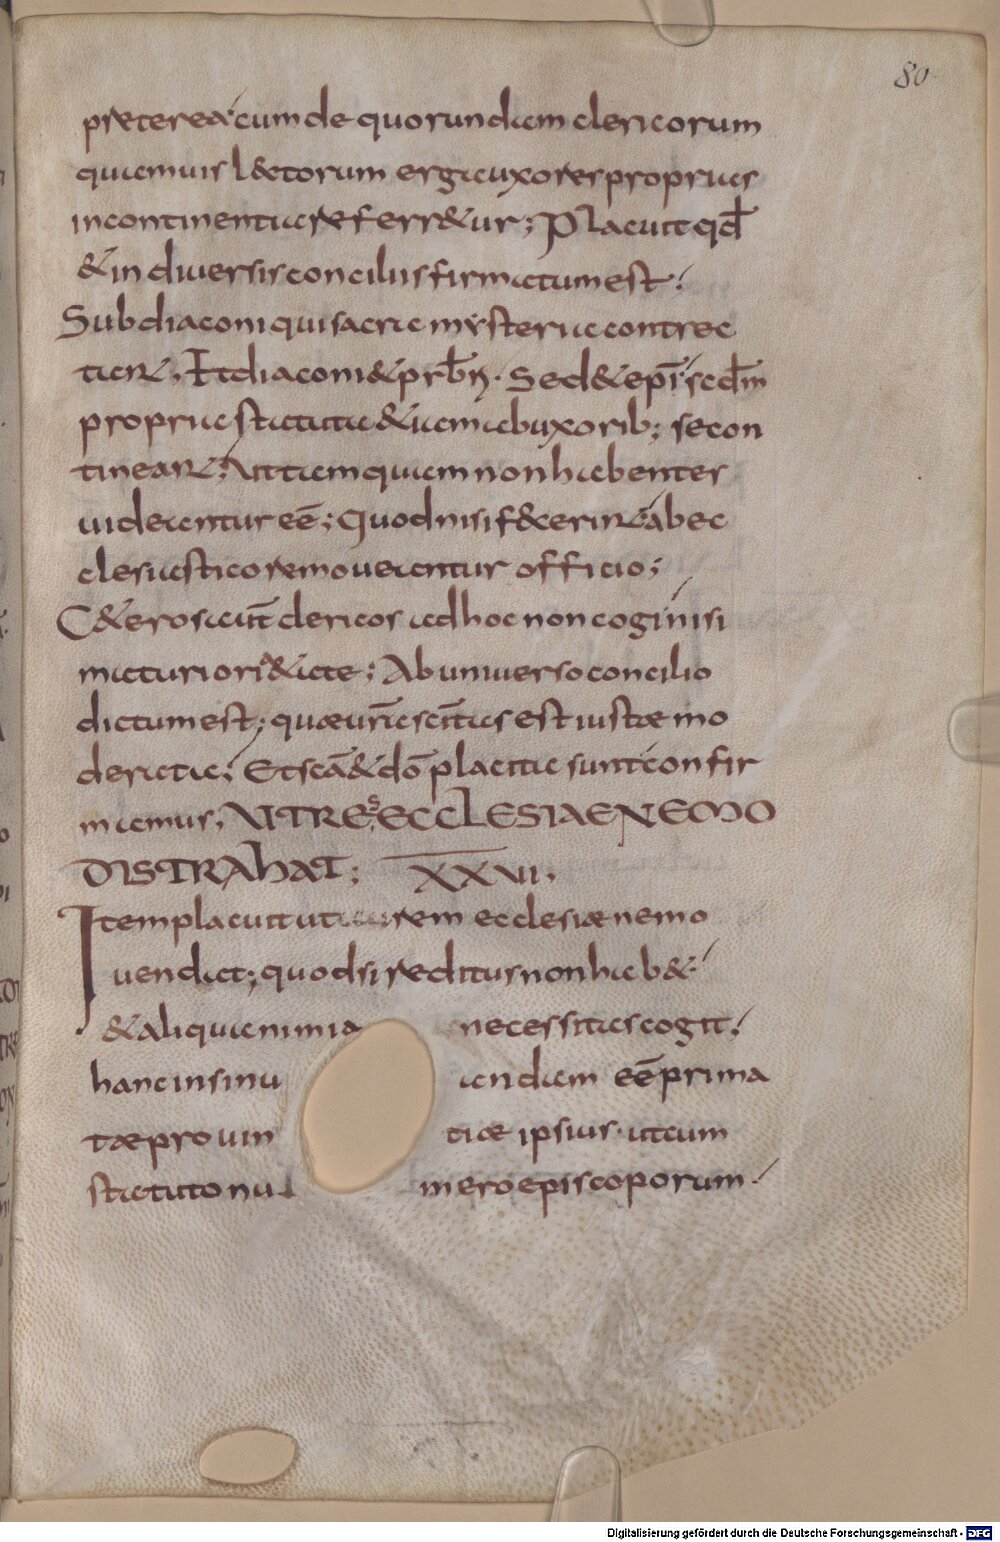 80
praeterea cum de quorundam clericorum
quamuis l&ctorum erga uxores proprias
incontinentia referr&ur; Placuit qd̄
& in diuersis conciliis firmatum est;
Subdiaconi qui sacra mysteria contrec
tant. Et diaconi & prb̄ri. Sed & ep̄i scd̄m
propria statuta &iam ab uxorib; se con
tineant; Ut tamquam non habentes
uideantur eē; Quod nisi f&cerint ab ec
clesiastico remoueantur officio;
C&eros aut̄ clericos ad hoc non cogi nisi
maturiori &ate; Ab uniuerso concilio
dictum est; quae ur̄a sc̄itas est iustae mo
derata; Et sc̄a & dō placita sunt confir
mamus, UT RES ECCLESIAE NEMO
DISTRAHAT; XXVI.
Item placuit ut rem ecclesiae nemo
uendat; quod si reditus non hab&
& aliqua nimia necessitas cogit;
hanc insinu andam eē prima
tae prouin tiae ipsius. ut cum
statuto nu mero episcoporum.
Digitalisierung gefördert durch die Deutsche Forschungsgemeinschaft - DFG